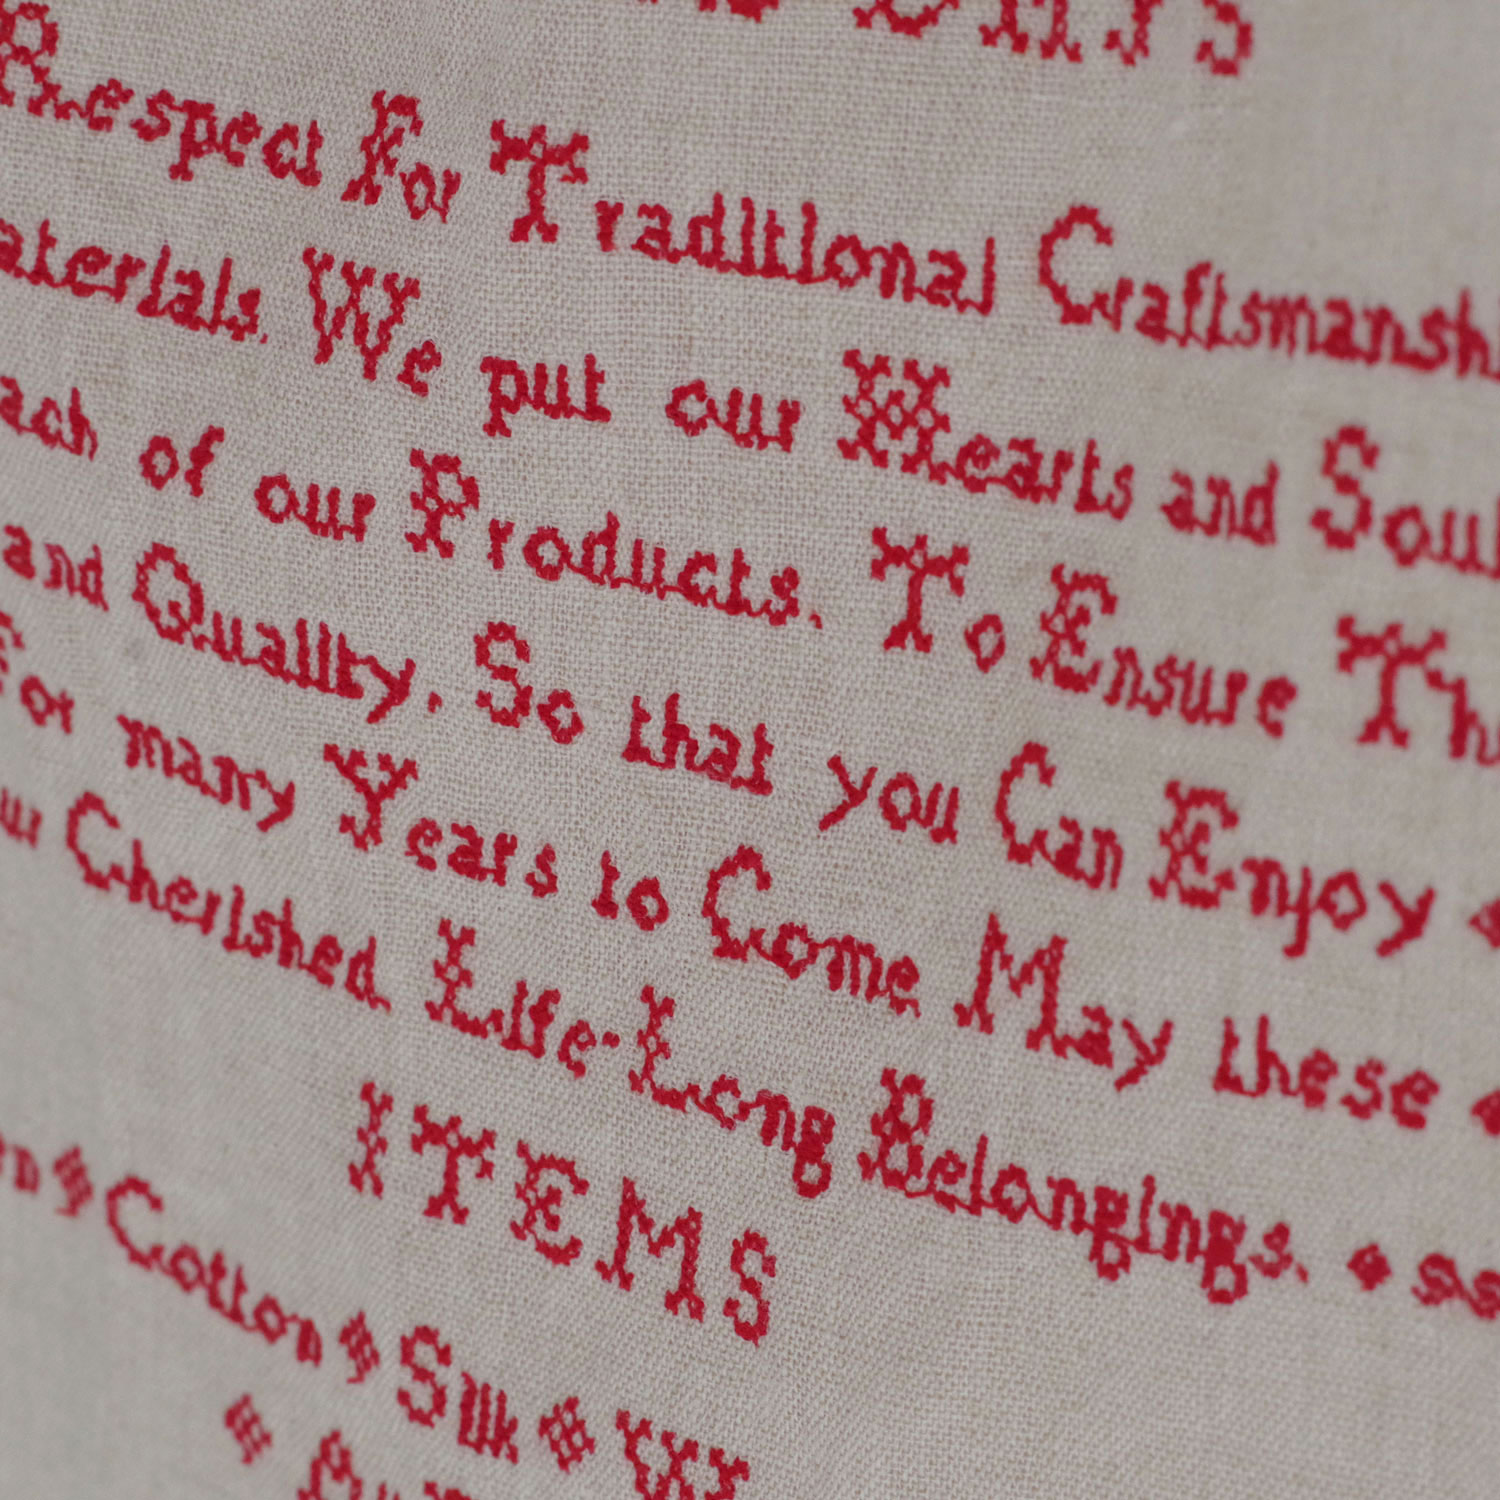 Respect For Traditional Craftsmanshi
aterials. We put our Hearts and Soul
ach of our Products. To Ensure Th
and Quality. So that you Can Enjoy
For many Years to Come May these
ur Cherished Life-Long Belongings. ss
ITEMS
en Cotton Silk W